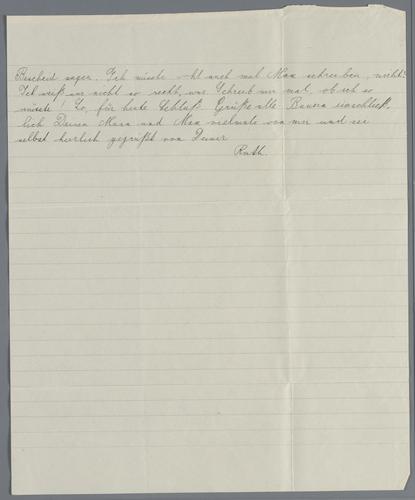 Bescheid sagen. Ich müsste auch mal Max schreiben, nicht?
Ich weiß nur nicht so recht, was. Schreib mir mal, ob ich so
müsste! So, für heute Schluß. Grüße alle Bauern einschließ-
lich Deiner Mama und Max vielmals von mir und sei
selbst herzlich gegrüßt von Deiner
Ruth.